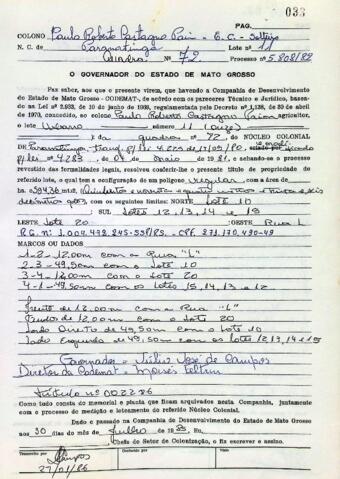 PAG.
033
COLONO Paulo Roberto Castagno Pain - C.C. - Solteiro
N. C. de Paranatinga Lote nº 11
Quadra nº 72 Processo nº 5.808/82
O GOVERNADOR DO ESTADO DE MATO GROSSO
Faz saber, aos que o presente virem, que havendo a Companhia de Desenvolvimento
do Estado de Mato Grosso - CODEMAT-, de acôrdo com os pareceres Técnico e Jurídico, basea-
da na Lei nº 2.933, de 10 de junho de 1938, regulamentada pelo Decreto nº 1.138, de 30 de abril
de 1970, concedido, ao colono Paulo Roberto Castagno Pain agricultor,
o lote Urbano número 11 (Onze)
da quadra 72, do NÚCLEO COLONIAL
de Paranatinga, 
p/lei nº 4.283, de 04 de maio de 1981, e achando-se o processo
revestido das formalidades legais, resolveu conferir-lhe o presente título de propriedade do
referido lote, o qual tem a configuração de um polígono regular, com a área de
594,36 m² (Quinhentos e noventa e quatro metros e trinta e seis
decímetros qdos), com os seguintes limites: NORTE Lote 10
SUL Lotes 12, 13, 14 e 15
LESTE Lote 20 OESTE Rua L
R.G. nº 1.004.478.245-SSP/RS. - CPF. 271.170.490-49
MARCOS OU DADOS
1-2 - 12,00m com a Rua "L"
2-3 - 49,50m com o lote 10
3-4 - 12,00m com o lote 20
4-1 - 49,50m com os lotes 15, 14, 13 e 12
Frente de 12,00m com a Rua "L"
Fundos de 12,00m com o lote 20
Lado Direito de 49,50m com o lote 10
Lado Esquerdo de 49,50m com os lotes 12, 13, 14 e 15
Governador - Júlio José de Campos
Diretor da Codemat - Moisés Feltrin
Título nº 002286
Como tudo consta do memorial e planta que ficam arquivados nesta Companhia, juntamente
com o processo de medição e loteamento do referido Núcleo Colonial.
Dado e passado na Companhia de Desenvolvimento do Estado de Mato Grosso
aos 30 dias do mês de Julho de 1985. Eu,
Chefe do Setor de Colonização, o fiz escrever e assino.
Transcrito por
Conferido por
Visto
27/01/86